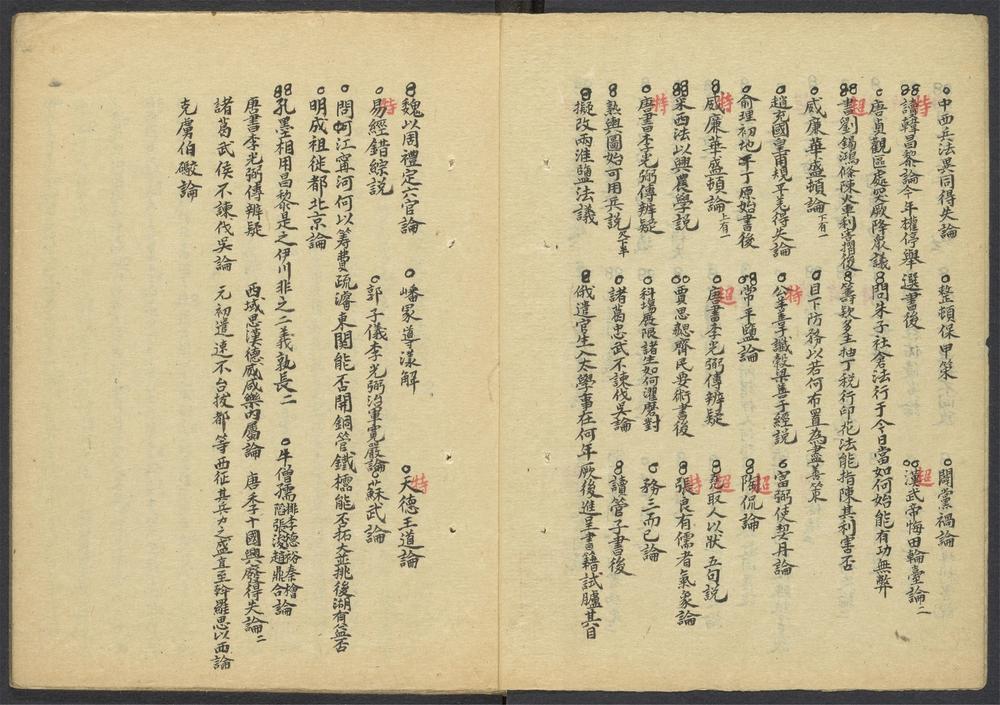 中西兵法異同得失論　整頓保甲策　闢黨禍論
特　讀韓昌黎論今年權停舉選書後　超　漢武帝悔田輪臺論二
唐貞觀區處突厥降眾議　問朱子社倉法行于今日當如何始能有功無弊
超　書劉錫鴻條陳火車利害摺後　籌款多主抽丁稅行印花法能指陳其利害否
威廉華盛頓論下有一　目下防務以若何布置為盡善策
趙充國皇甫規平羌得失論　特　公羊善讖穀梁善于經說　富弼使契丹論
俞理初地丁原始書後　常平鹽論　超　陶侃論
特　威廉華盛頓論上有一　超　唐書李光弼傳辨疑　超　堯取人以狀五句說
采西法以興農學說　賈思勰齊民要術書後　特　張良有儒者氣象論
特　唐書李光弼傳辨疑　科場展限諸生如何濯磨對　務三而已論
熱輿圖始可用兵說　諸葛忠武不諫伐吳論　讀管子書後
擬改兩淮鹽法議　俄遣官生入太學事在何年厥後進呈書籍試臚其目
魏以周禮定六官論　嶓冢導漾解　特　天德王道論
特　易經錯綜說　郭子儀李光弼治軍寬嚴論　蘇武論
問何江寧河何以籌費疏濬東關能否開銅管鐵檽能否拓并挑後湖有益否
明成祖徙都北京論
孔墨相用昌黎是之伊川非之二義孰長二　牛僧孺排李德裕秦檜陷張浚趙鼎合論
唐書李光弼傳辨疑　西域思漢德威咸樂內屬論　唐季十國興廢得失論二
諸葛武侯不諫伐吳論　元初遣速不台拔都等西征其兵力之盛直至斡羅思以西論
克虜伯礮論